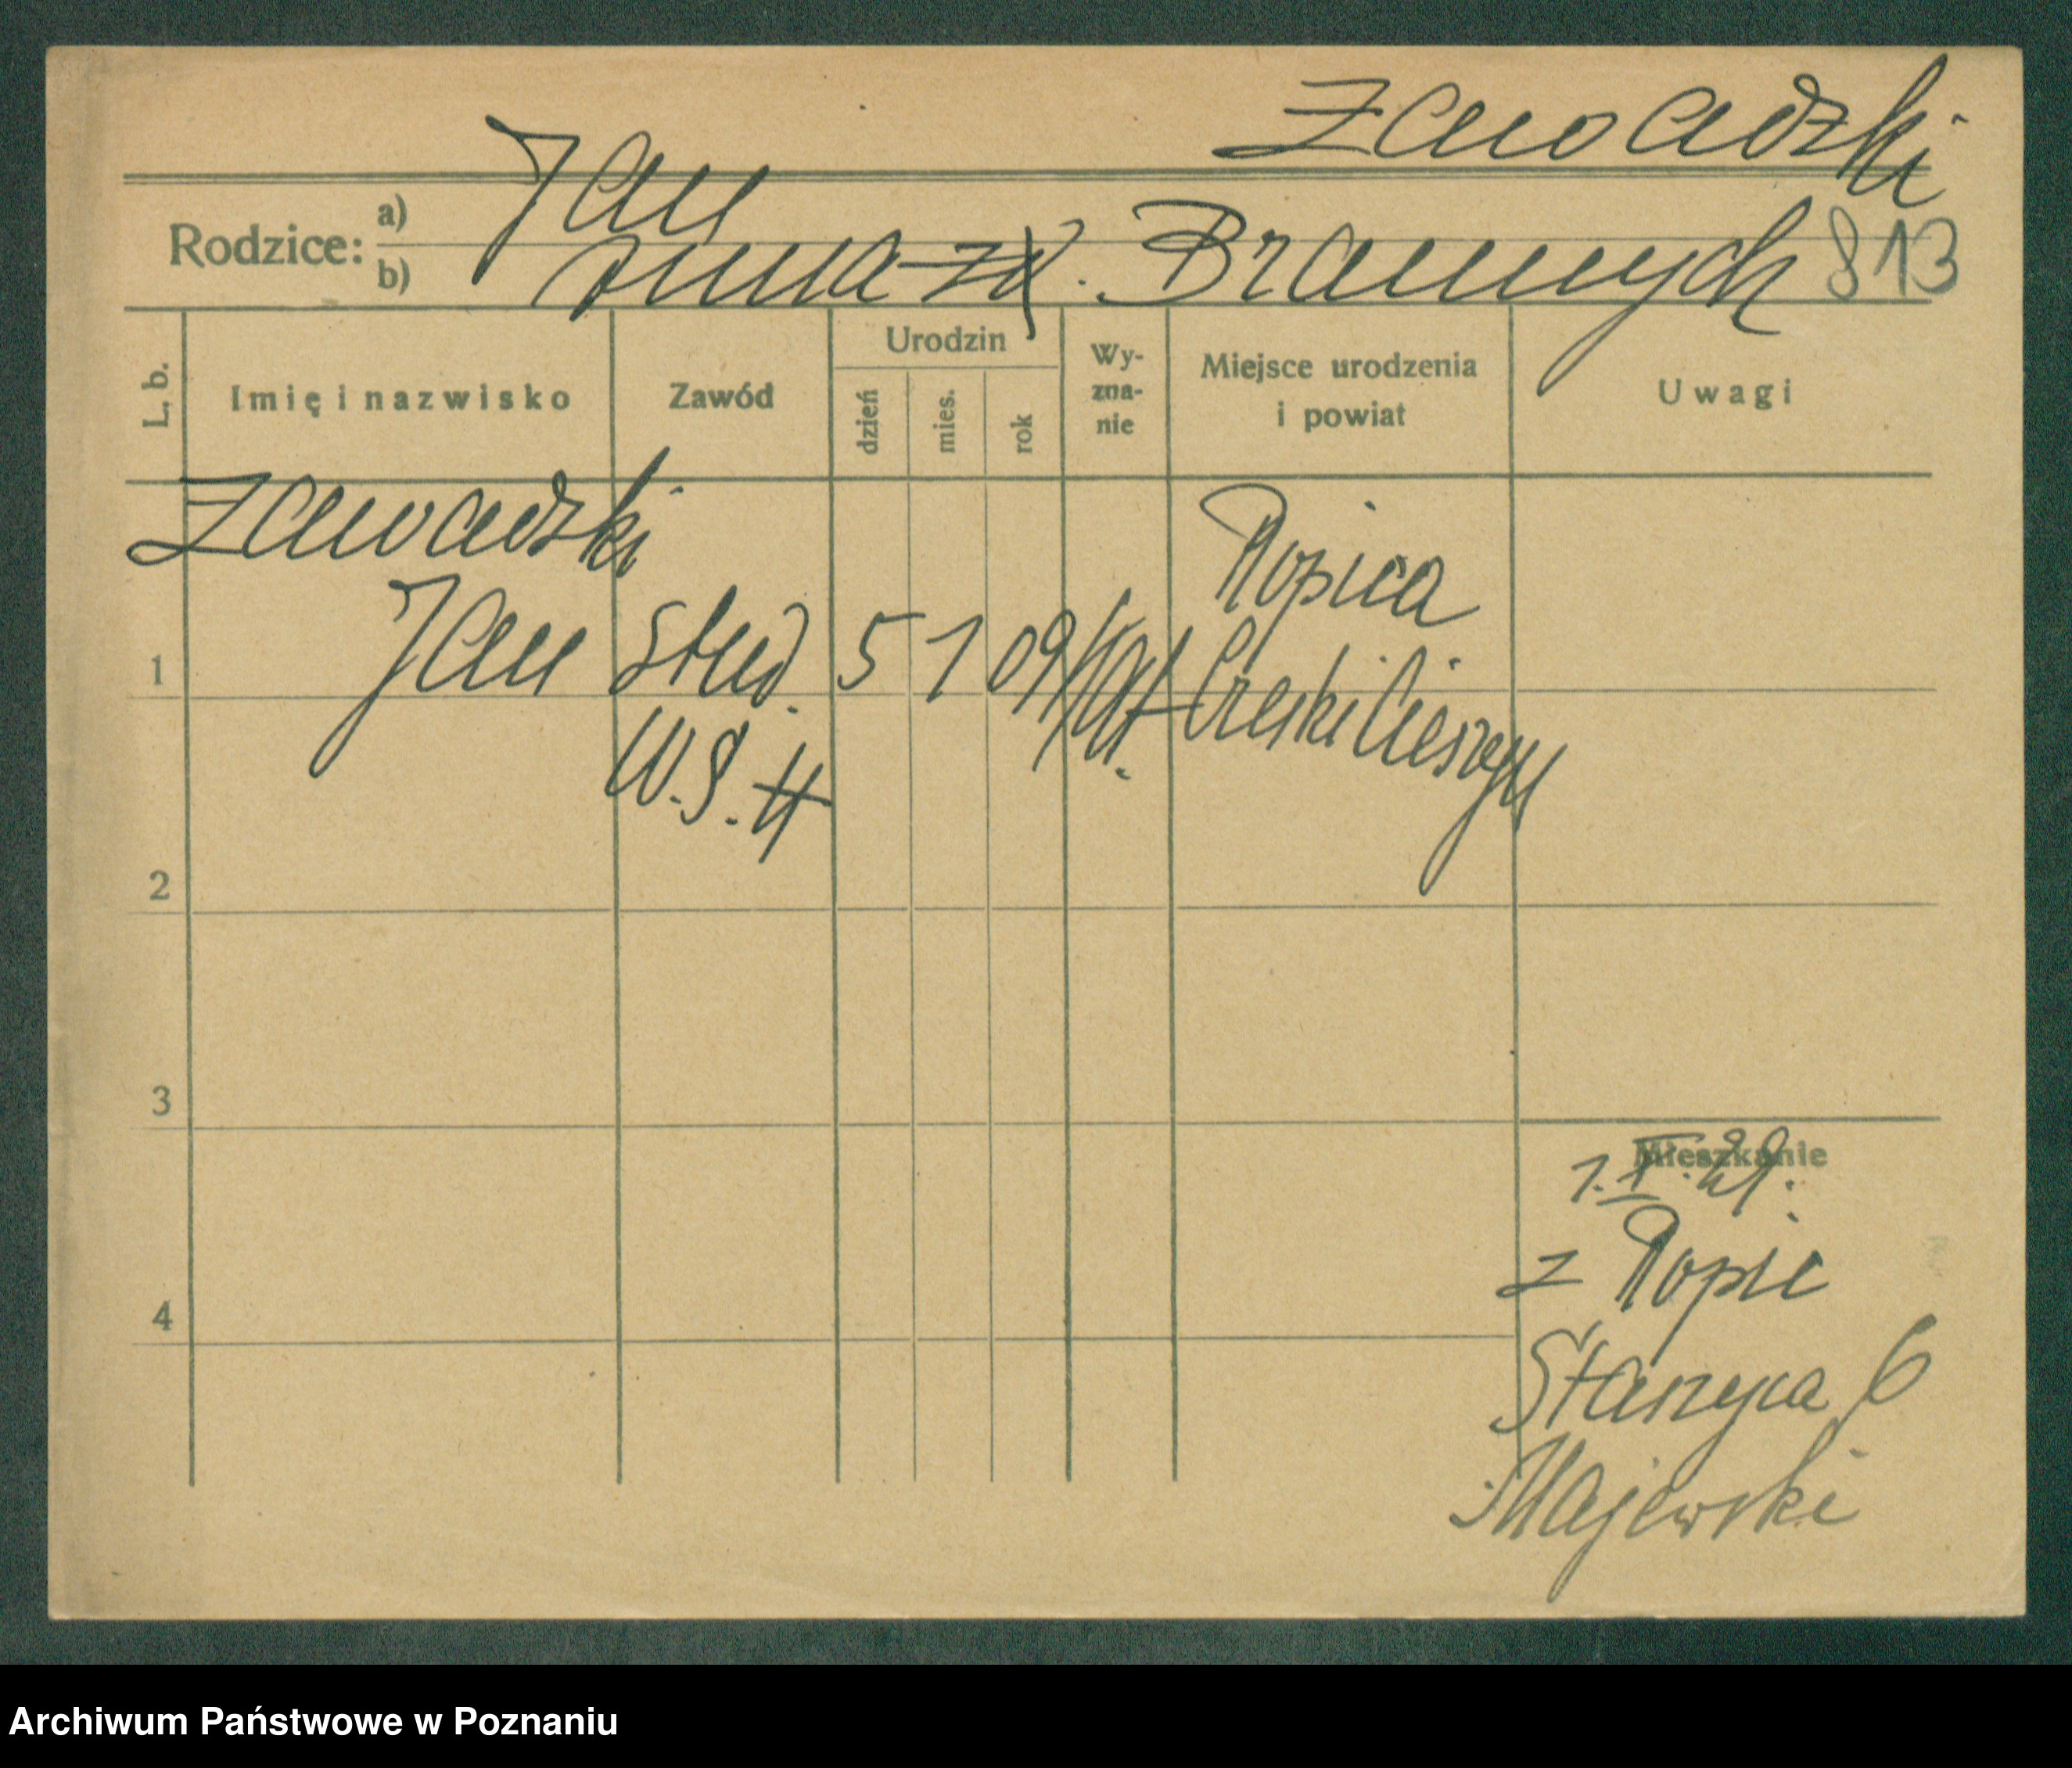 Zawadzki
Rodzice:
a) Jan
b) Anna zd. Brannych 813
L. b.
Imię i nazwisko
Zawód
Urodzin
dzień
mies.
rok
Wy-
zna-
nie
Miejsce urodzenia
i powiat
Uwagi
Zawadzki
Ropica
1 Jan stud. 5 1 09 kat. Czeski Cieszyn
W.S.H
2
3
4
Mieszkanie
1.X.29.
z Ropic
Staszyca 6
Majewski
Archiwum Państwowe w Poznaniu